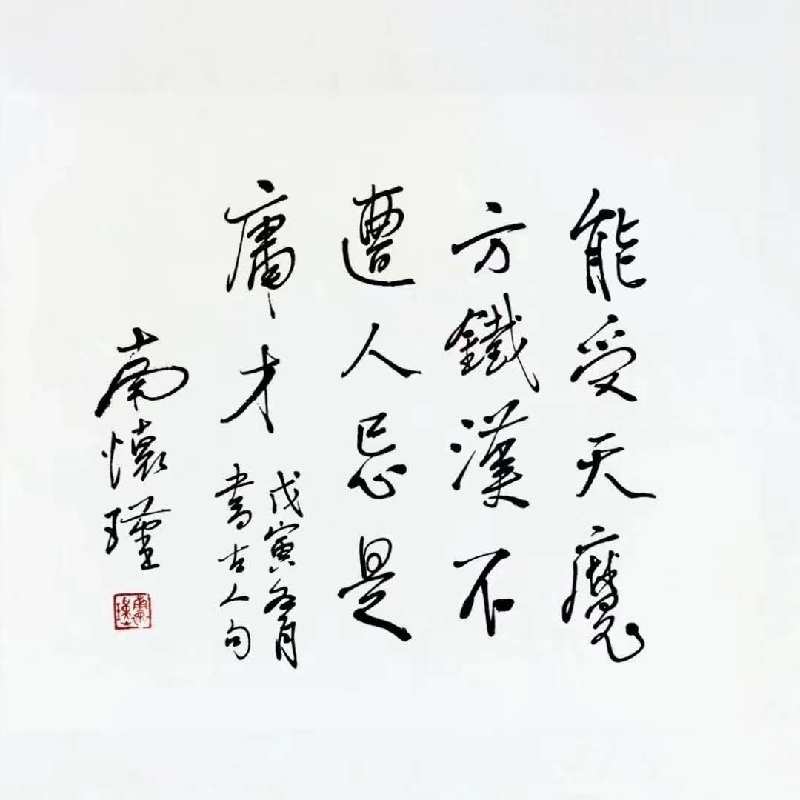 能受天魔
方鐵漢不
遭人忌是
庸才
戊寅冬月
書古人句
南懷瑾